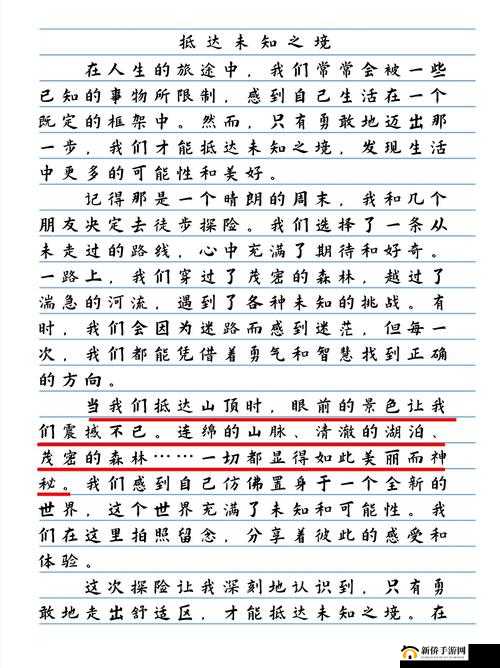 抵达未知之境
在人生的旅途中，我们常常会被一些
已知的事物所限制，感到自己生活在一个
既定的框架中。然而，只有勇敢地迈出那
一步，我们才能抵达未知之境，发现生活
中更多的可能性和美好。
记得那是一个晴朗的周末，我和几个
朋友决定去徒步探险。我们选择了一条从
未走过的路线，心中充满了期待和好奇。
一路上，我们穿过了茂密的森林，越过了
湍急的河流，遇到了各种未知的挑战。有
时，我们会因为迷路而感到迷茫，但每一
次，我们都能凭借着勇气和智慧找到正确
的方向。
当我们抵达山顶时，眼前的景色让我
们震撼不已。连绵的山脉、清澈的湖泊、
茂密的森林……一切都显得如此美丽而神
秘。我们感到自己仿佛置身于一个全新的
世界，这个世界充满了未知和可能性。我
们在这里拍照留念，分享着彼此的感受和
体验。
这次探险让我深刻地认识到，只有勇
敢地走出舒适区，才能抵达未知之境。在
新侨手游网